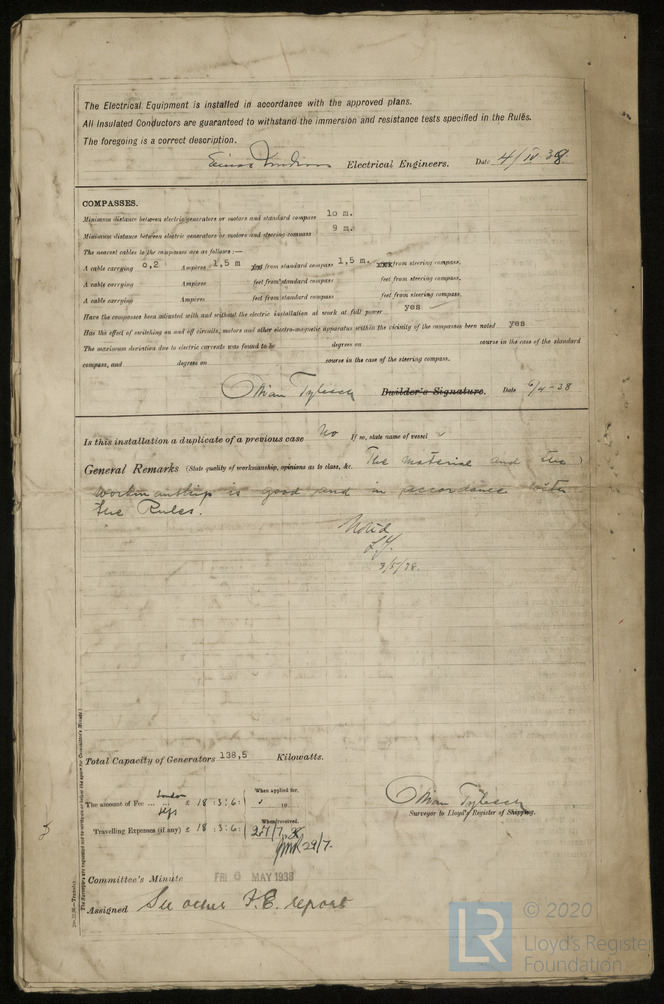 The Electrical Equipment is installed in accordance with the approved plans.
All Insulated Conductors are guaranteed to withstand the immersion and resistance tests specified in the Rules.
The foregoing is a correct description.
Electrical Engineers. Date 4/IV 38.
COMPASSES.
Minimum distance between electric generators or motors and standard compass 10 m.
Minimum distance between electric generators or motors and steering compass 9 m.
The nearest cables to the compasses are as follows:—
A cable carrying 0,2 Ampères 1,5 m from standard compass 1,5 m. from steering compass.
A cable carrying Ampères feet from standard compass feet from steering compass.
A cable carrying Ampères feet from standard compass feet from steering compass.
Have the compasses been adjusted with and without the electric installation at work at full power yes
Has the effect of switching on and off circuits, motors and other electro-magnetic apparatus within the vicinity of the compasses been noted yes
The maximum deviation due to electric currents was found to be degrees on course in the case of the standard
compass, and degrees on course in the case of the steering compass.
Builder's Signature. Date 6/4-38
Is this installation a duplicate of a previous case No If so, state name of vessel
General Remarks (State quality of workmanship, opinions as to class, &c. The material and the
workmanship is good and in accordance with
the Rules.
Noted
3/5/38.
Total Capacity of Generators 138,5 Kilowatts.
London
The amount of Fee ... £ 18 : 3 : 6 : When applied for, 19
Travelling Expenses (if any) £ 18 : 3 : 6 : When received,
29/7.
Surveyor to Lloyd's Register of Shipping.
Committee's Minute FRI 6 MAY 1938
Assigned See other F.E. report
(The Surveyors are requested not to write on or below the space for Committee's Minute.)
© 2020
LR
Lloyd's Register
Foundation